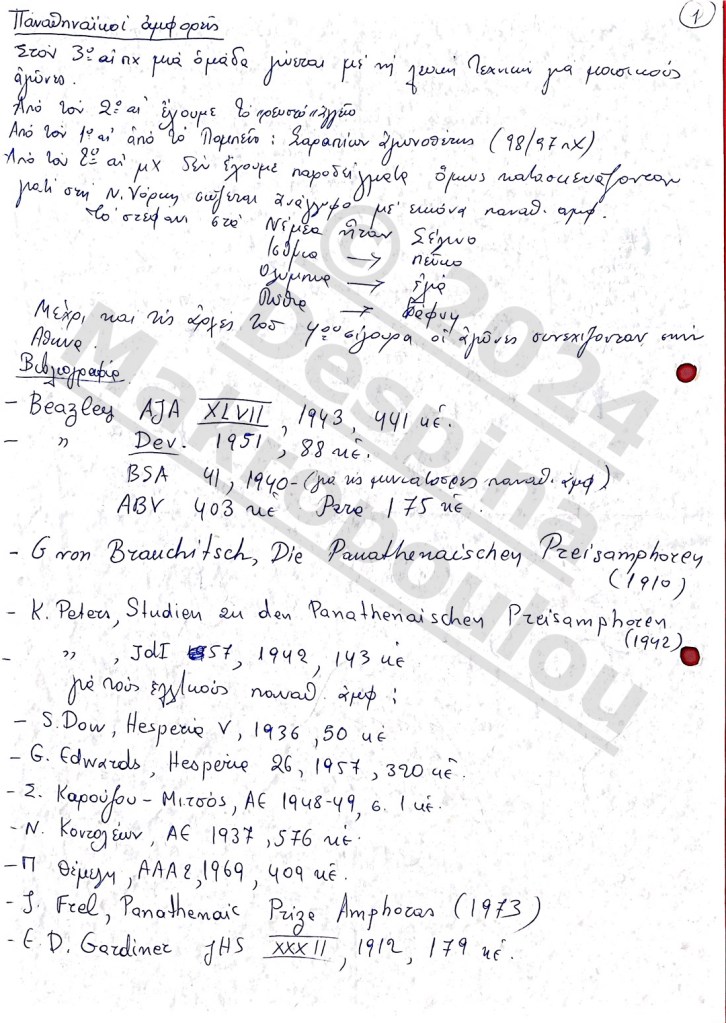 1
Παναθηναϊκοί αμφορείς
Στον 3ο αι πχ μιά ομάδα γίνεται με τη λευκή τεχνική για μουσικούς
αγώνες.
Από τον 2ο αι έχουμε το
Από τον 1ο αι από το Πομπείο: Σαραπίων αγωνοθέτης (98/97 πΧ)
Από τον 2ο αι μΧ δεν έχουμε παραδείγματα όμως κατασκευάζονταν
γιατί στη Ν. Υόρκη σώζεται ανάγλυφο με εικόνα παναθ. αμφ.
Το στεφάνι στα Νέμεα ήταν Σέλινο
Ισθμια → πεύκο
Ολύμπια → ελιά
Πύθια → δάφνη
Μεχρι και τις αρχές του 4ου οι αγώνες συνεχίζονταν στην
Αθήνα.
Βιβλιογραφία
- Beazley AJA XLVII, 1943, 441 κέ.
- " Dev. 1951, 88 κέ.
BSA 41, 1940- (για τις μινιατούρες παναθ. αμφ)
ABV 403 κέ Para 175 κέ.
- G von Brauchitsch, Die Panathenaischen Preisamphoren
(1910)
- K. Peters, Studien zu den Panathenaischen Preisamphoren
(1942)
- " , JdI 57, 1942, 143 κέ
για τούς ελλ/κούς παναθ. αμφ:
- S. Dow, Hesperia V, 1936, 50 κέ
- G. Edwards, Hesperia 26, 1957, 320 κέ.
- Σ. Καρούζου - Μιτσός, ΑΕ 1948-49, σ. 1 κέ.
- Ν. Κοντολέων, ΑΕ 1937, 576 κέ.
- Π Θέμελη, ΑΑΑ 2, 1969, 409 κέ.
- J. Frel, Panathenaic Prize Amphoras (1973)
- E. D. Gardiner JHS XXXII, 1912, 179 κέ.
© 2024
Despina
Makropoulou